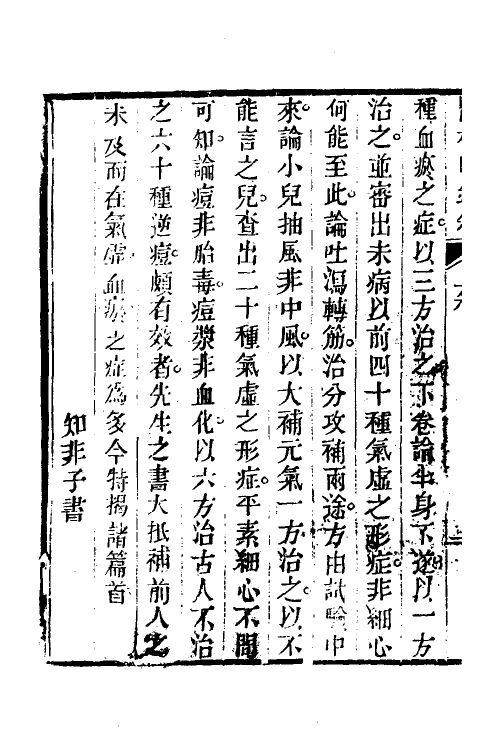 種血瘀之症以三方治之下卷論半身不遂以一方
治之並審出未病以前四十種氣虛之形症非細心
何能至此論吐瀉轉筋治分攻補兩途方由試驗中
來論小兒抽風非中風以大補元氣一方治之以不
能言之兒查出二十種氣虛之形症平素細心不問
可知論痘非胎毒痘漿非血化以六方治古人不治
之六十種逆痘頗有效者先生之書大抵補前人之
未及而在氣虛血瘀之症為多今特揭諸篇首
知非子書